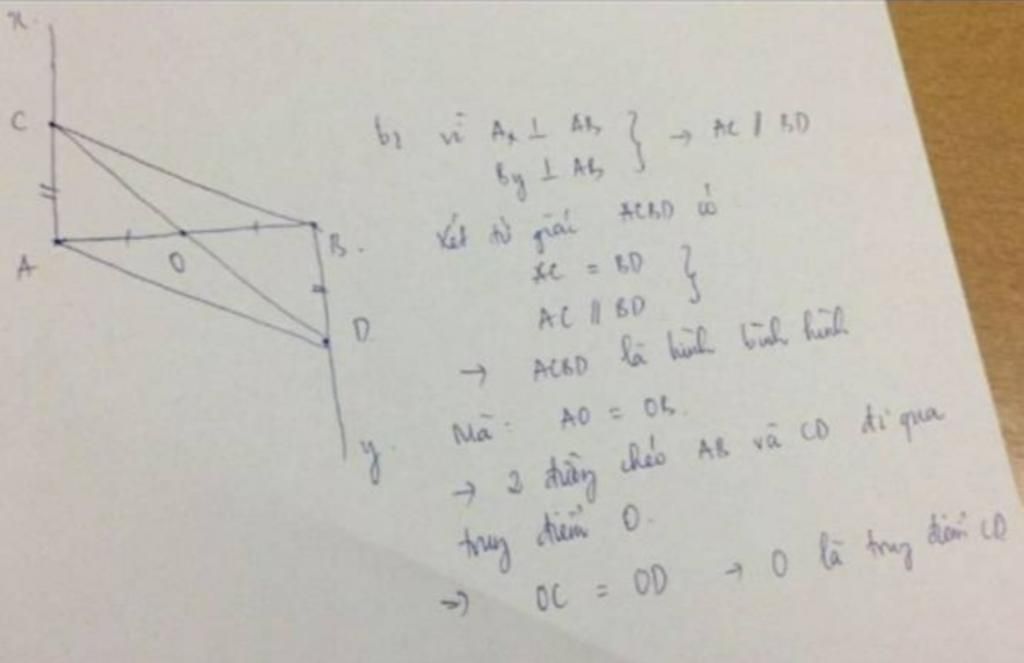 x
C
A
O
B.
D
y.
b, vì Ax ⊥ AB } → AC // BD
By ⊥ AB
Xét tứ giác ACBD có
AC = BD }
AC // BD
→ ACBD là hình bình hình
Mà: AO = OB.
→ 2 đường chéo AB và CD đi qua
trung điểm O.
→ OC = OD → O là trung điểm CD